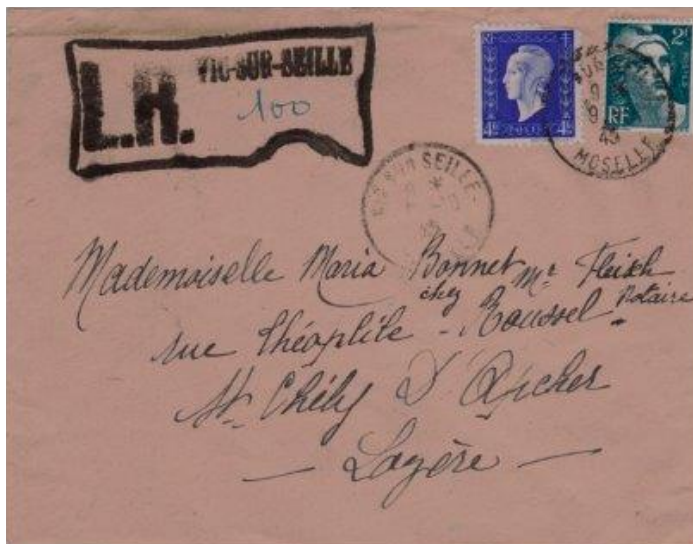 L.R. VIC-SUR-SEILLE
100
4F 4F
2F
RF
MOSELLE
VIC SUR SEILLE
Mademoiselle Maria Bonnet
chez Mr Fleisch
Notaire
rue Théophile - Roussel
St Chély D'Apcher
- Lozère -